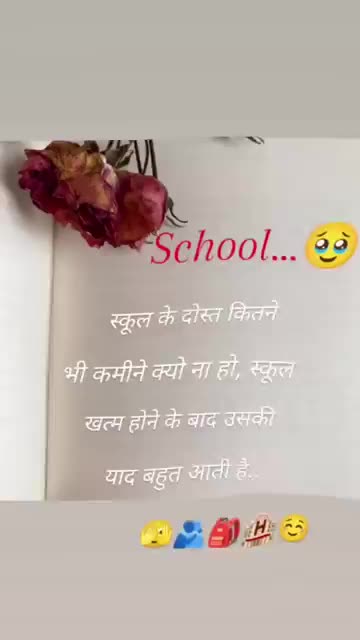 School...🥹
स्कूल के दोस्त कितने
भी कमीने क्यो ना हो, स्कूल
खत्म होने के बाद उसकी
याद बहुत आती है..
🫣🫂🎒🏨☺️